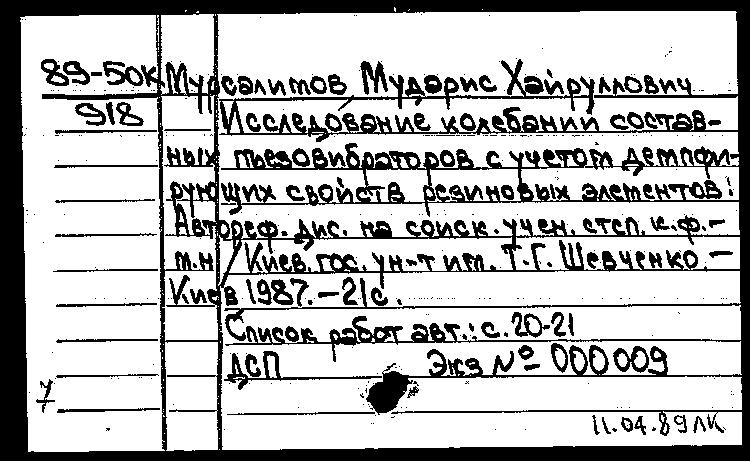 89-50к Мурсалитов Мударис Хайруллович
918 Исследование колебаний состав-
ных пьезовибраторов с учетом демпфи-
рующих свойств резиновых элементов:
Автореф. дис. на соиск. учен. степ. к.ф.-
м.н / Киев. гос. ун-т им. Т.Г. Шевченко. –
Киев 1987. – 21с.
Список работ авт.: с. 20-21
ДСП Экз № 000009
7
11.04.89 ЛК